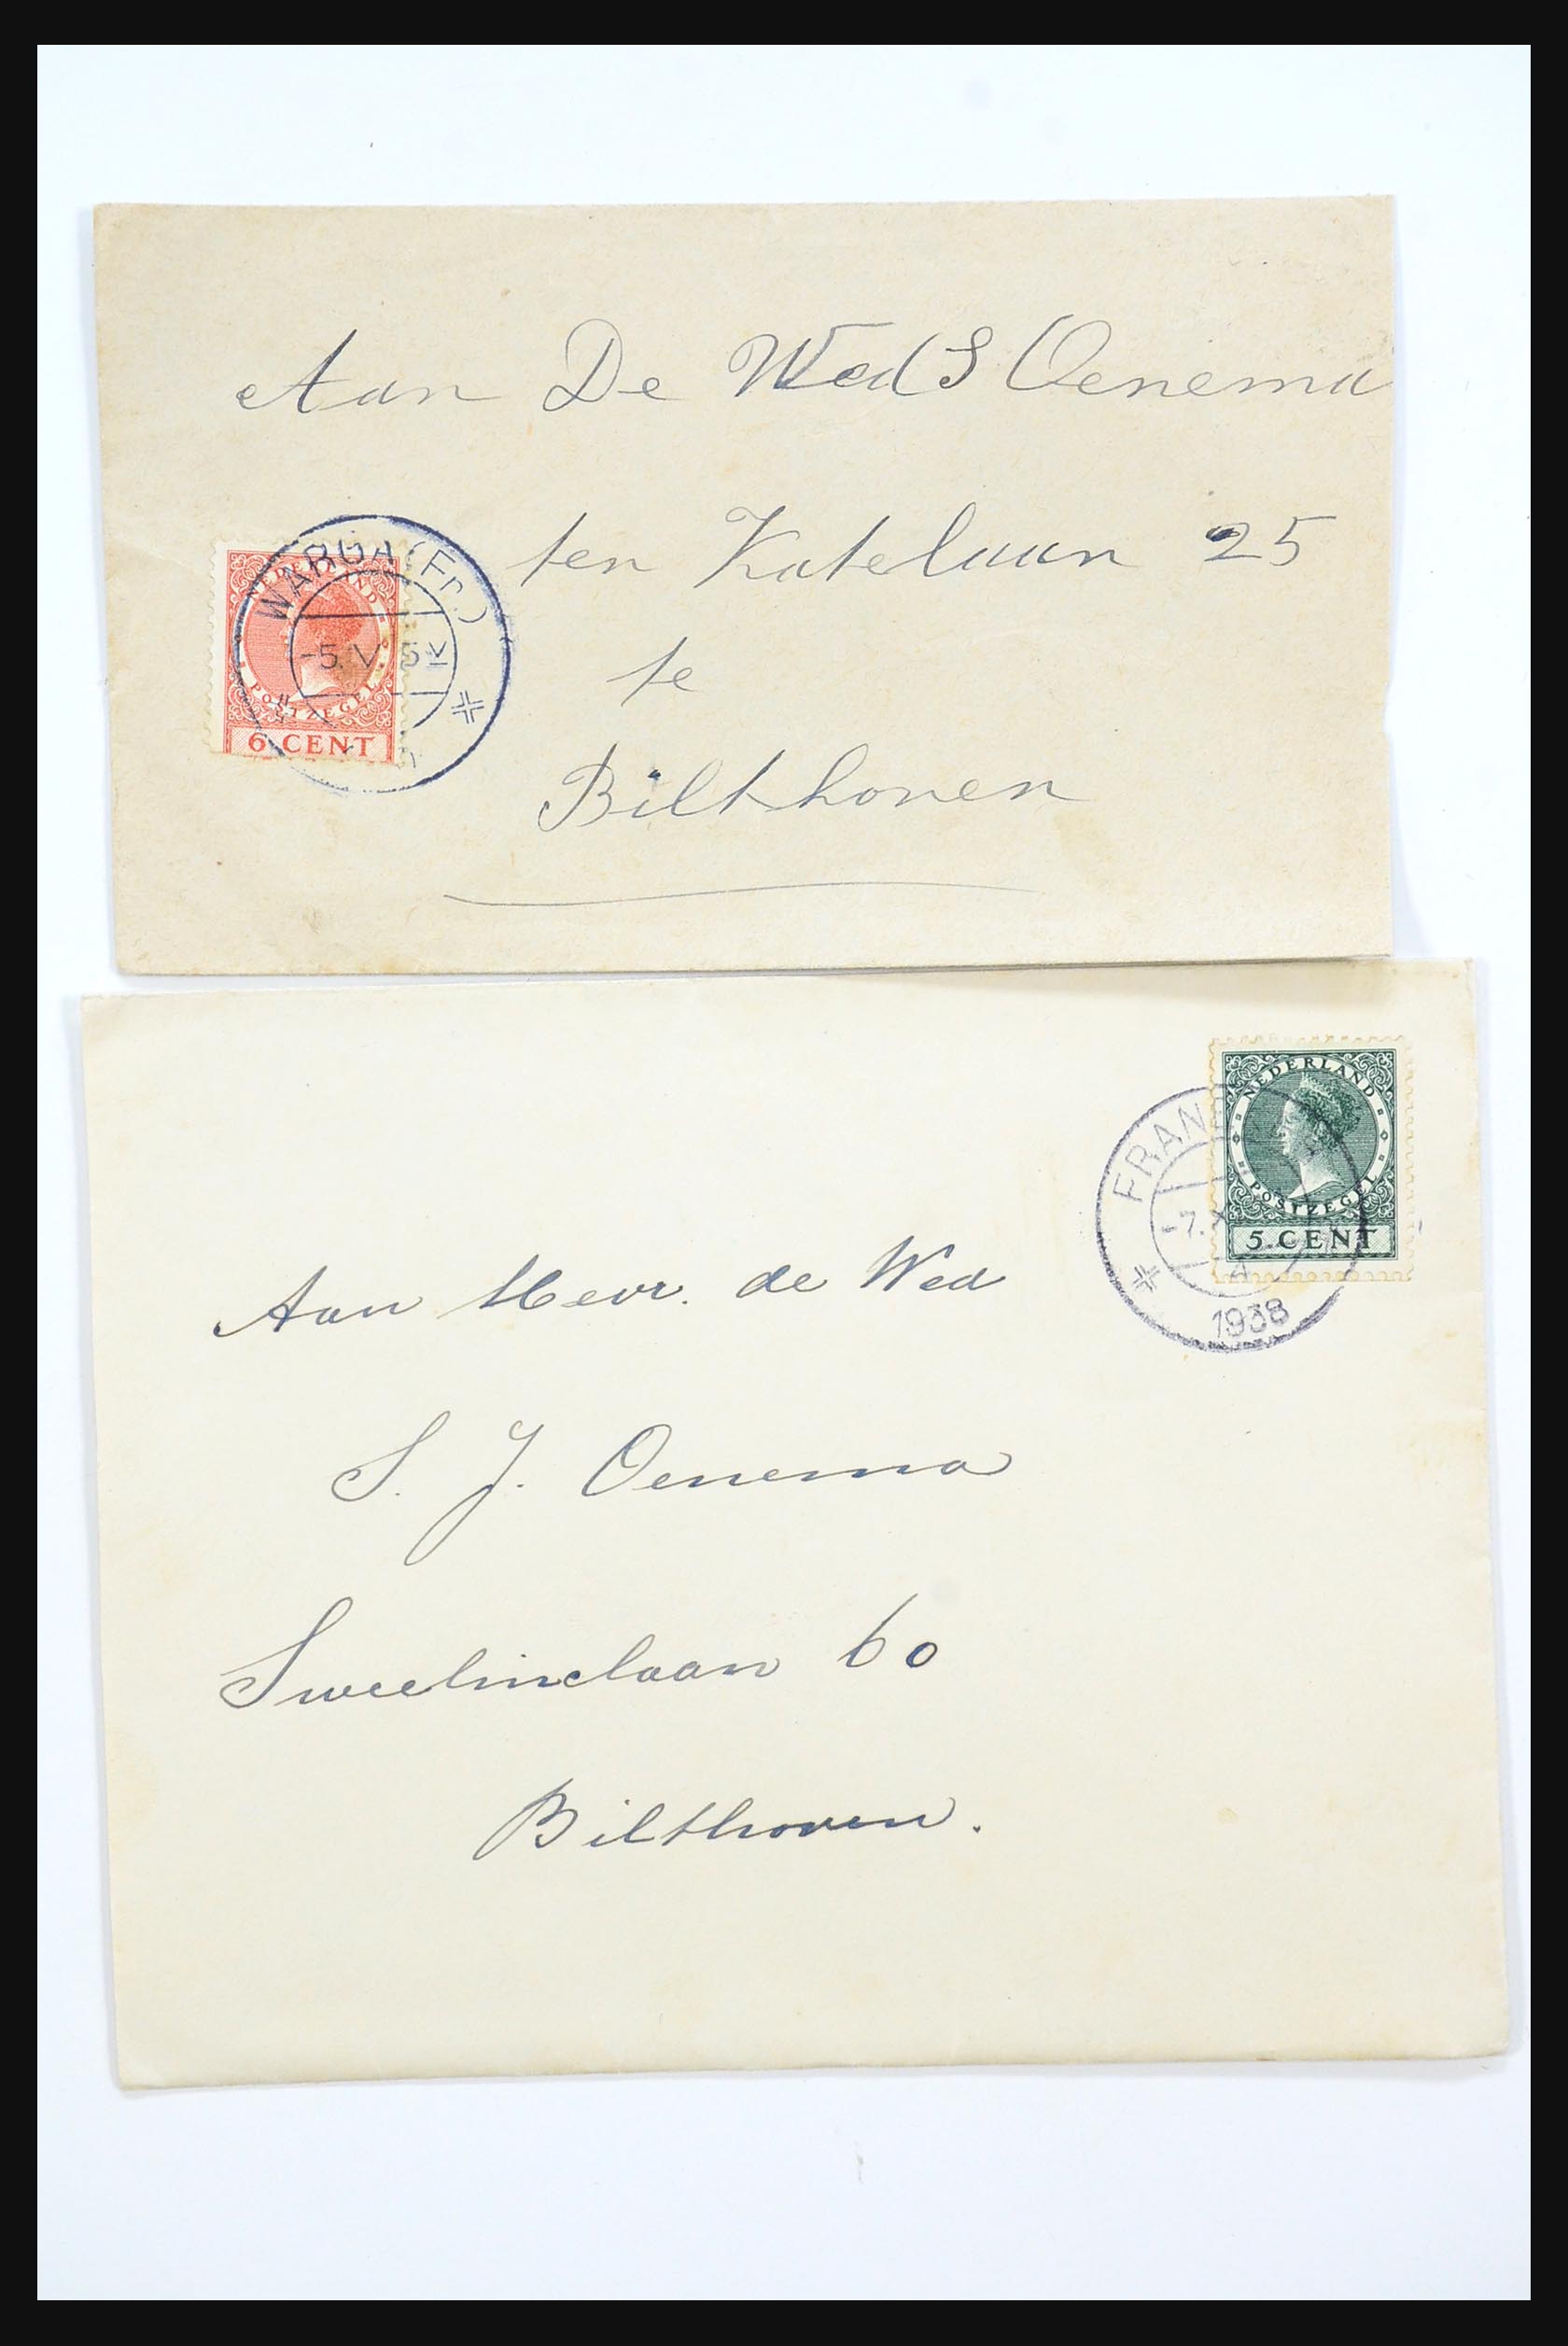 Aan De Wed S Oenema
ten Katelaan 25
te
Bilthoven
WARGA (Fr.)
-5. V 5
NEDERLAND
POSTZEGEL
6 CENT
NEDERLAND
POSTZEGEL
5 CENT
FRAN
-7. X
4
1938
Aan Mevr. de Wed
S. J. Oenema
Sweelinclaan 60
Bilthoven.